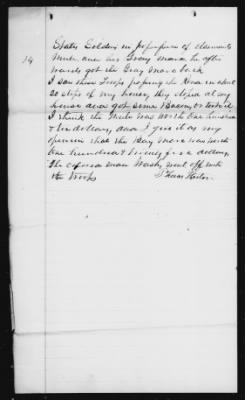 States Soldiers in possession of claimants
Mule and his Gray mare he after
wards got the Gray Mare back
14
I saw these Troops passing the River in about
20 steps of my house, they stoped at my
house and got some Bacon,
I think the Mule was worth One hundred
& ten dollars, and I give it as my
opinion that the Bay Mare was worth
One hundred & twenty five dollars,
the colored man Wash, went off with
the Troops